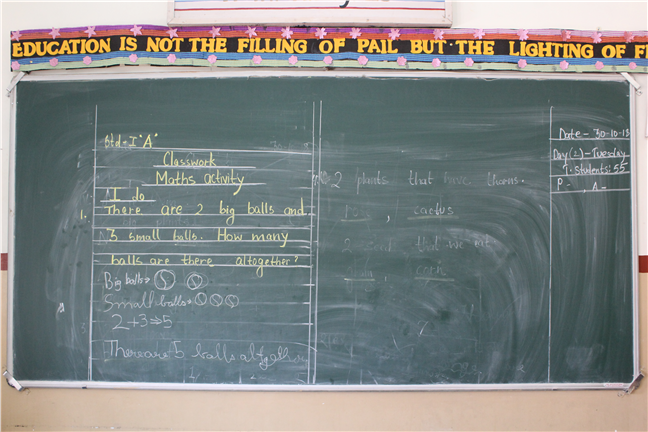 EDUCATION IS NOT THE FILLING OF PAIL BUT THE LIGHTING OF
Std - I "A"
Classwork
Maths activity
I do
1. There are 2 big balls and
3 small balls. How many
balls are there altogether?
Big balls
Small balls
2+3=5
There are 5 balls altogether
2 plants that have thorns.
rose, cactus
2 that we eat
corn
Date - 30-10-18
Day (L) - Tuesday
T. Students: 55
P - , A -